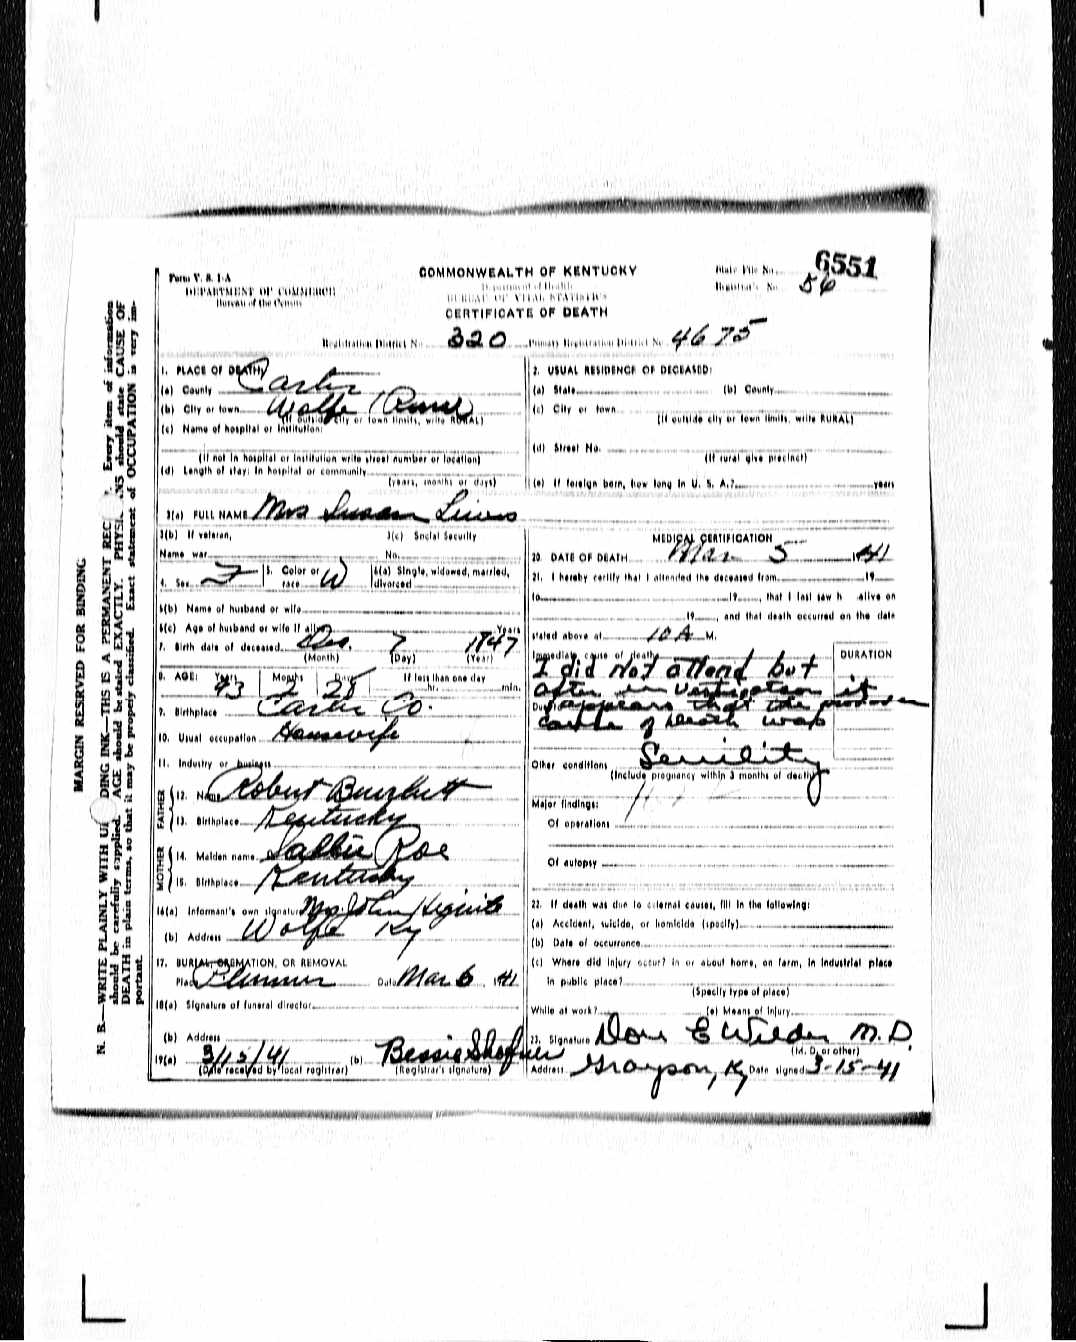 6551
Form V. S. 1-A
DEPARTMENT OF COMMERCE
Bureau of the Census
COMMONWEALTH OF KENTUCKY
Department of Health
BUREAU OF VITAL STATISTICS
CERTIFICATE OF DEATH
State File No.
Registrar's No. 56
Registration District No. 320 Primary Registration District No. 4675
1. PLACE OF DEATH:
(a) County Carter
(b) City or town Wolfe (Rural)
(If outside city or town limits, write RURAL)
(c) Name of hospital or institution:
(If not in hospital or institution write street number or location)
(d) Length of stay: In hospital or community
(years, months or days)
2. USUAL RESIDENCE OF DECEASED:
(a) State (b) County
(c) City or town
(If outside city or town limits, write RURAL)
(d) Street No.
(If rural give precinct)
(e) If foreign born, how long in U. S. A.? years
3(a) FULL NAME Mrs Susan
3(b) If veteran, 3(c) Social Security
Name war No.
4. Sex F 5. Color or race W 6(a) Single, widowed, married,
divorced
6(b) Name of husband or wife
6(c) Age of husband or wife if alive Years
7. Birth date of deceased Dec. 7 1847
(Month) (Day) (Year)
8. AGE: Years 93 Months 2 Days 28 If less than one day
hr. min.
9. Birthplace Carter Co.
10. Usual occupation Housewife
11. Industry or business
FATHER
12. Name Robert
13. Birthplace Kentucky
MOTHER
14. Maiden name Sallie Roe
15. Birthplace Kentucky
16(a) Informant's own signature John
(b) Address Wolfe Ky
17. BURIAL, CREMATION, OR REMOVAL
Place Date Mar 6, 41
18(a) Signature of funeral director
(b) Address
19(a) 3/15/41 (b) Bessie
(Date received by local registrar) (Registrar's signature)
MEDICAL CERTIFICATION
20. DATE OF DEATH Mar 5 1941
21. I hereby certify that I attended the deceased from 19
to 19 , that I last saw h alive on
19 , and that death occurred on the date
stated above at 10 A M.
Immediate cause of death DURATION
I did not attend but
after investigation it
Due to appears that the
cause of death was
Senility
Other conditions
(Include pregnancy within 3 months of death)
Major findings:
Of operations
Of autopsy
22. If death was due to external causes, fill in the following:
(a) Accident, suicide, or homicide (specify)
(b) Date of occurrence
(c) Where did injury occur? in or about home, on farm, in industrial place
in public place?
(Specify type of place)
While at work? (e) Means of Injury
23. Signature Don E Wilder M. D.
(M. D. or other)
Address Grayson, Ky Date signed 3-15-41
MARGIN RESERVED FOR BINDING
N. B.—WRITE PLAINLY WITH DING INK—THIS IS A PERMANENT REC Every item of information
should be carefully supplied. AGE should be stated EXACTLY. PHYSIC NS should state CAUSE OF
DEATH in plain terms, so that it may be properly classified. Exact statement of OCCUPATION is very im-
portant.